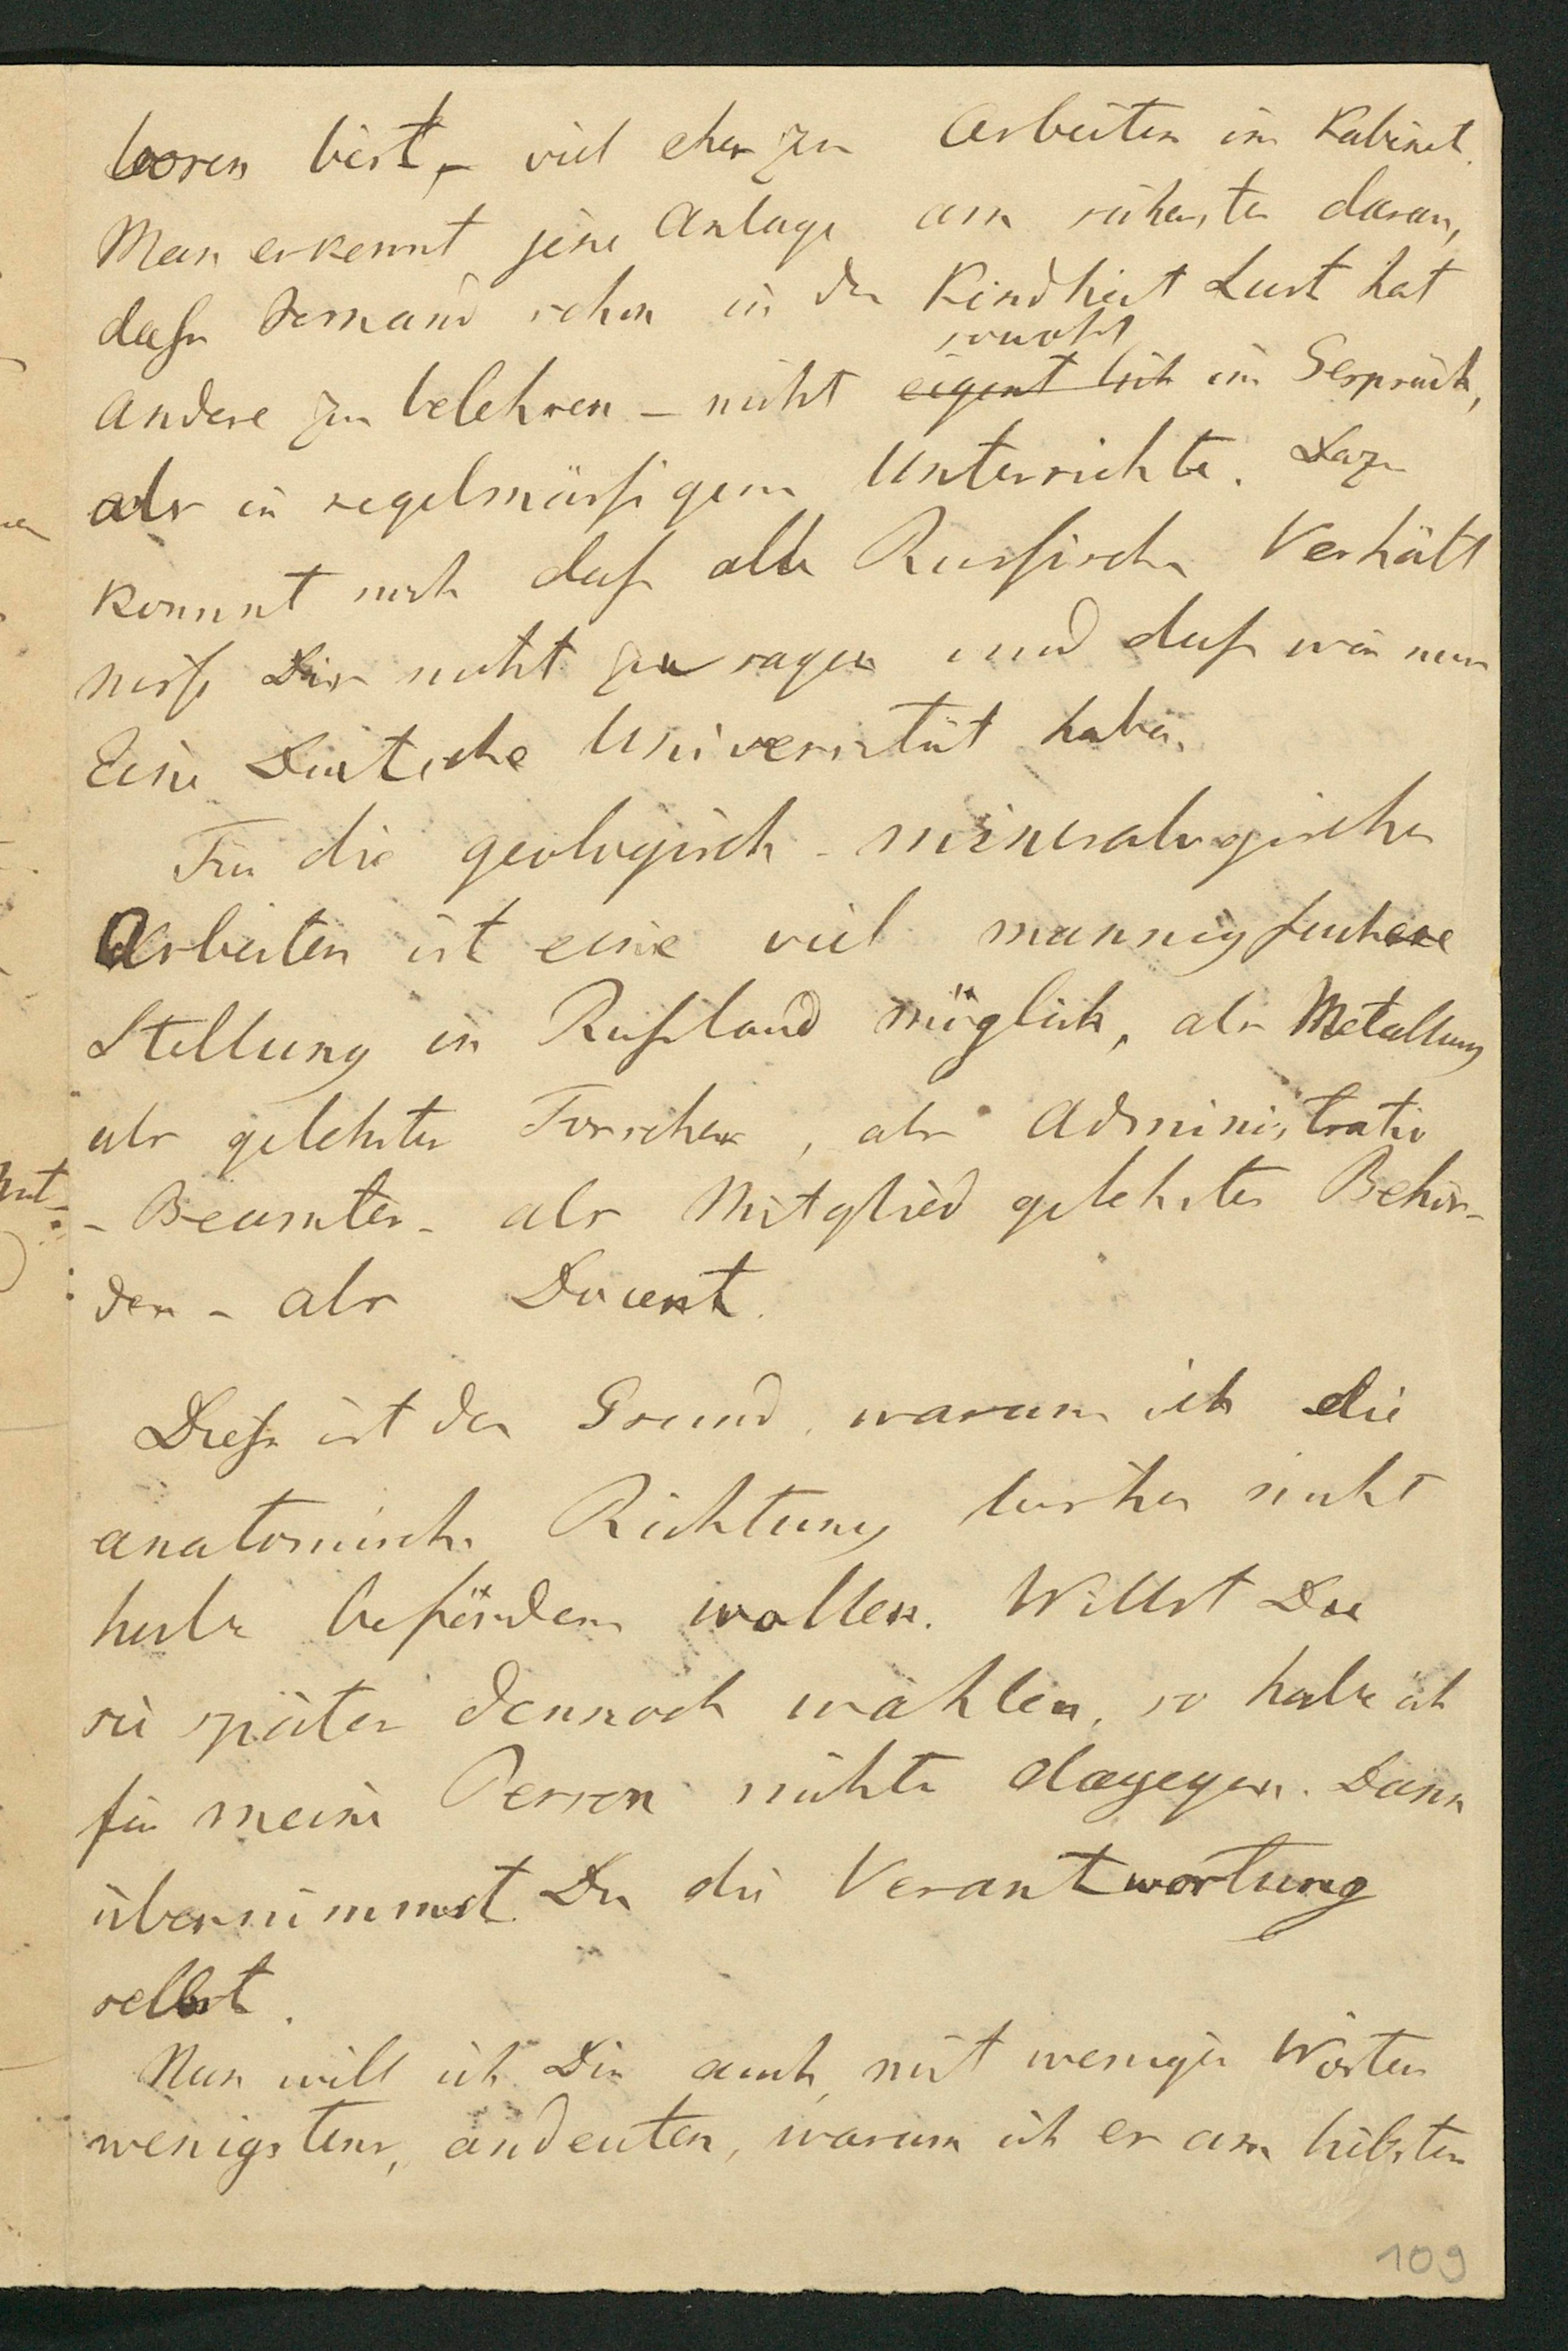 boren bist, – viel eher zu Arbeiten im Kabinet.
Man erkennt jene Anlage am sichersten daran,
daß Jemand schon in der Kindheit Lust hat
sowohl
Andere zu belehren – nicht eigentlich im Gespräch,
als in regelmäßigem Unterrichte. Dazu
kommt noch daß alle Russische Verhält
niße Dir nicht zu sagen und daß wir nur
Eine Deutsche Universität haben.
Für die geologisch-mineralogischen
Arbeiten ist eine viel mannigfachere
Stellung in Rußland möglich, als Metallurg
als gelehrter Forscher, als Administrativ
– Beamter – als Mitglied gelehrter Behör-
den – als Docent.
Dieß ist der Grund, warum ich die
anatomische Richtung bisher nicht
habe befördern wollen. Willst Du
sie später dennoch wählen, so habe ich
für meine Person nichts dagegen. Dann
übernimmst Du die Verantwortung
selbst.
Nun will ich Dir auch, mit wenigen Worten
wenigstens, andeuten, warum ich es am liebsten
109